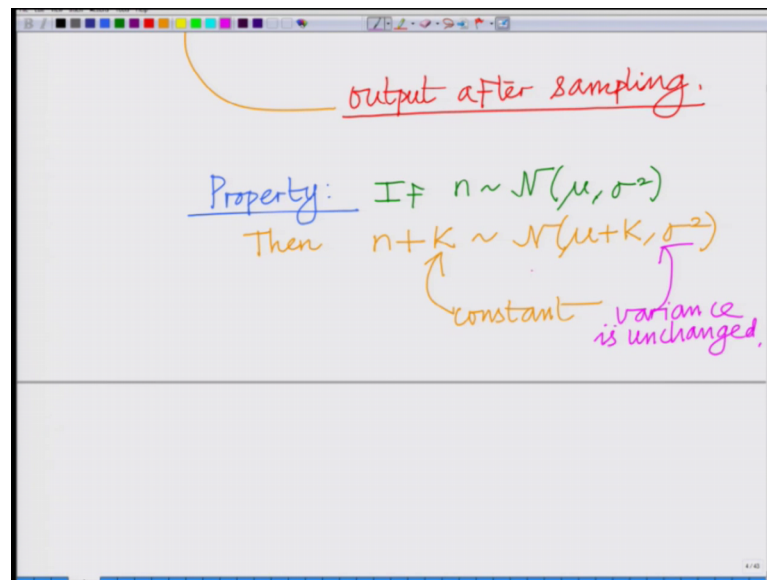 output after sampling.
Property: IF n ~ N(μ, σ²)
Then n+K ~ N(μ+K, σ²)
constant variance
is unchanged.
4/43